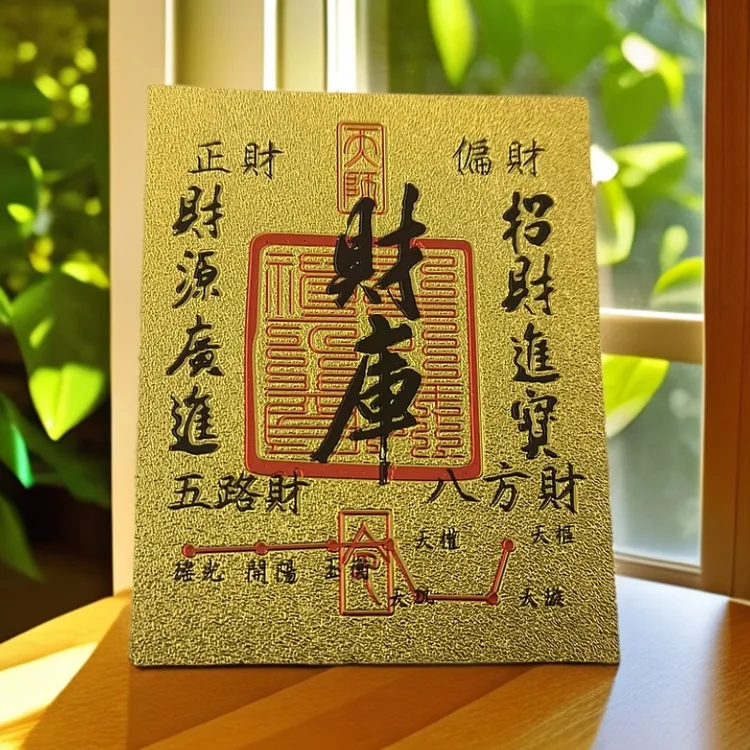 天師
正財
偏財
財庫
招財進寶
財源廣進
五路財
八方財
瑤光 開陽 玉衡
天權
天樞
天璇
令